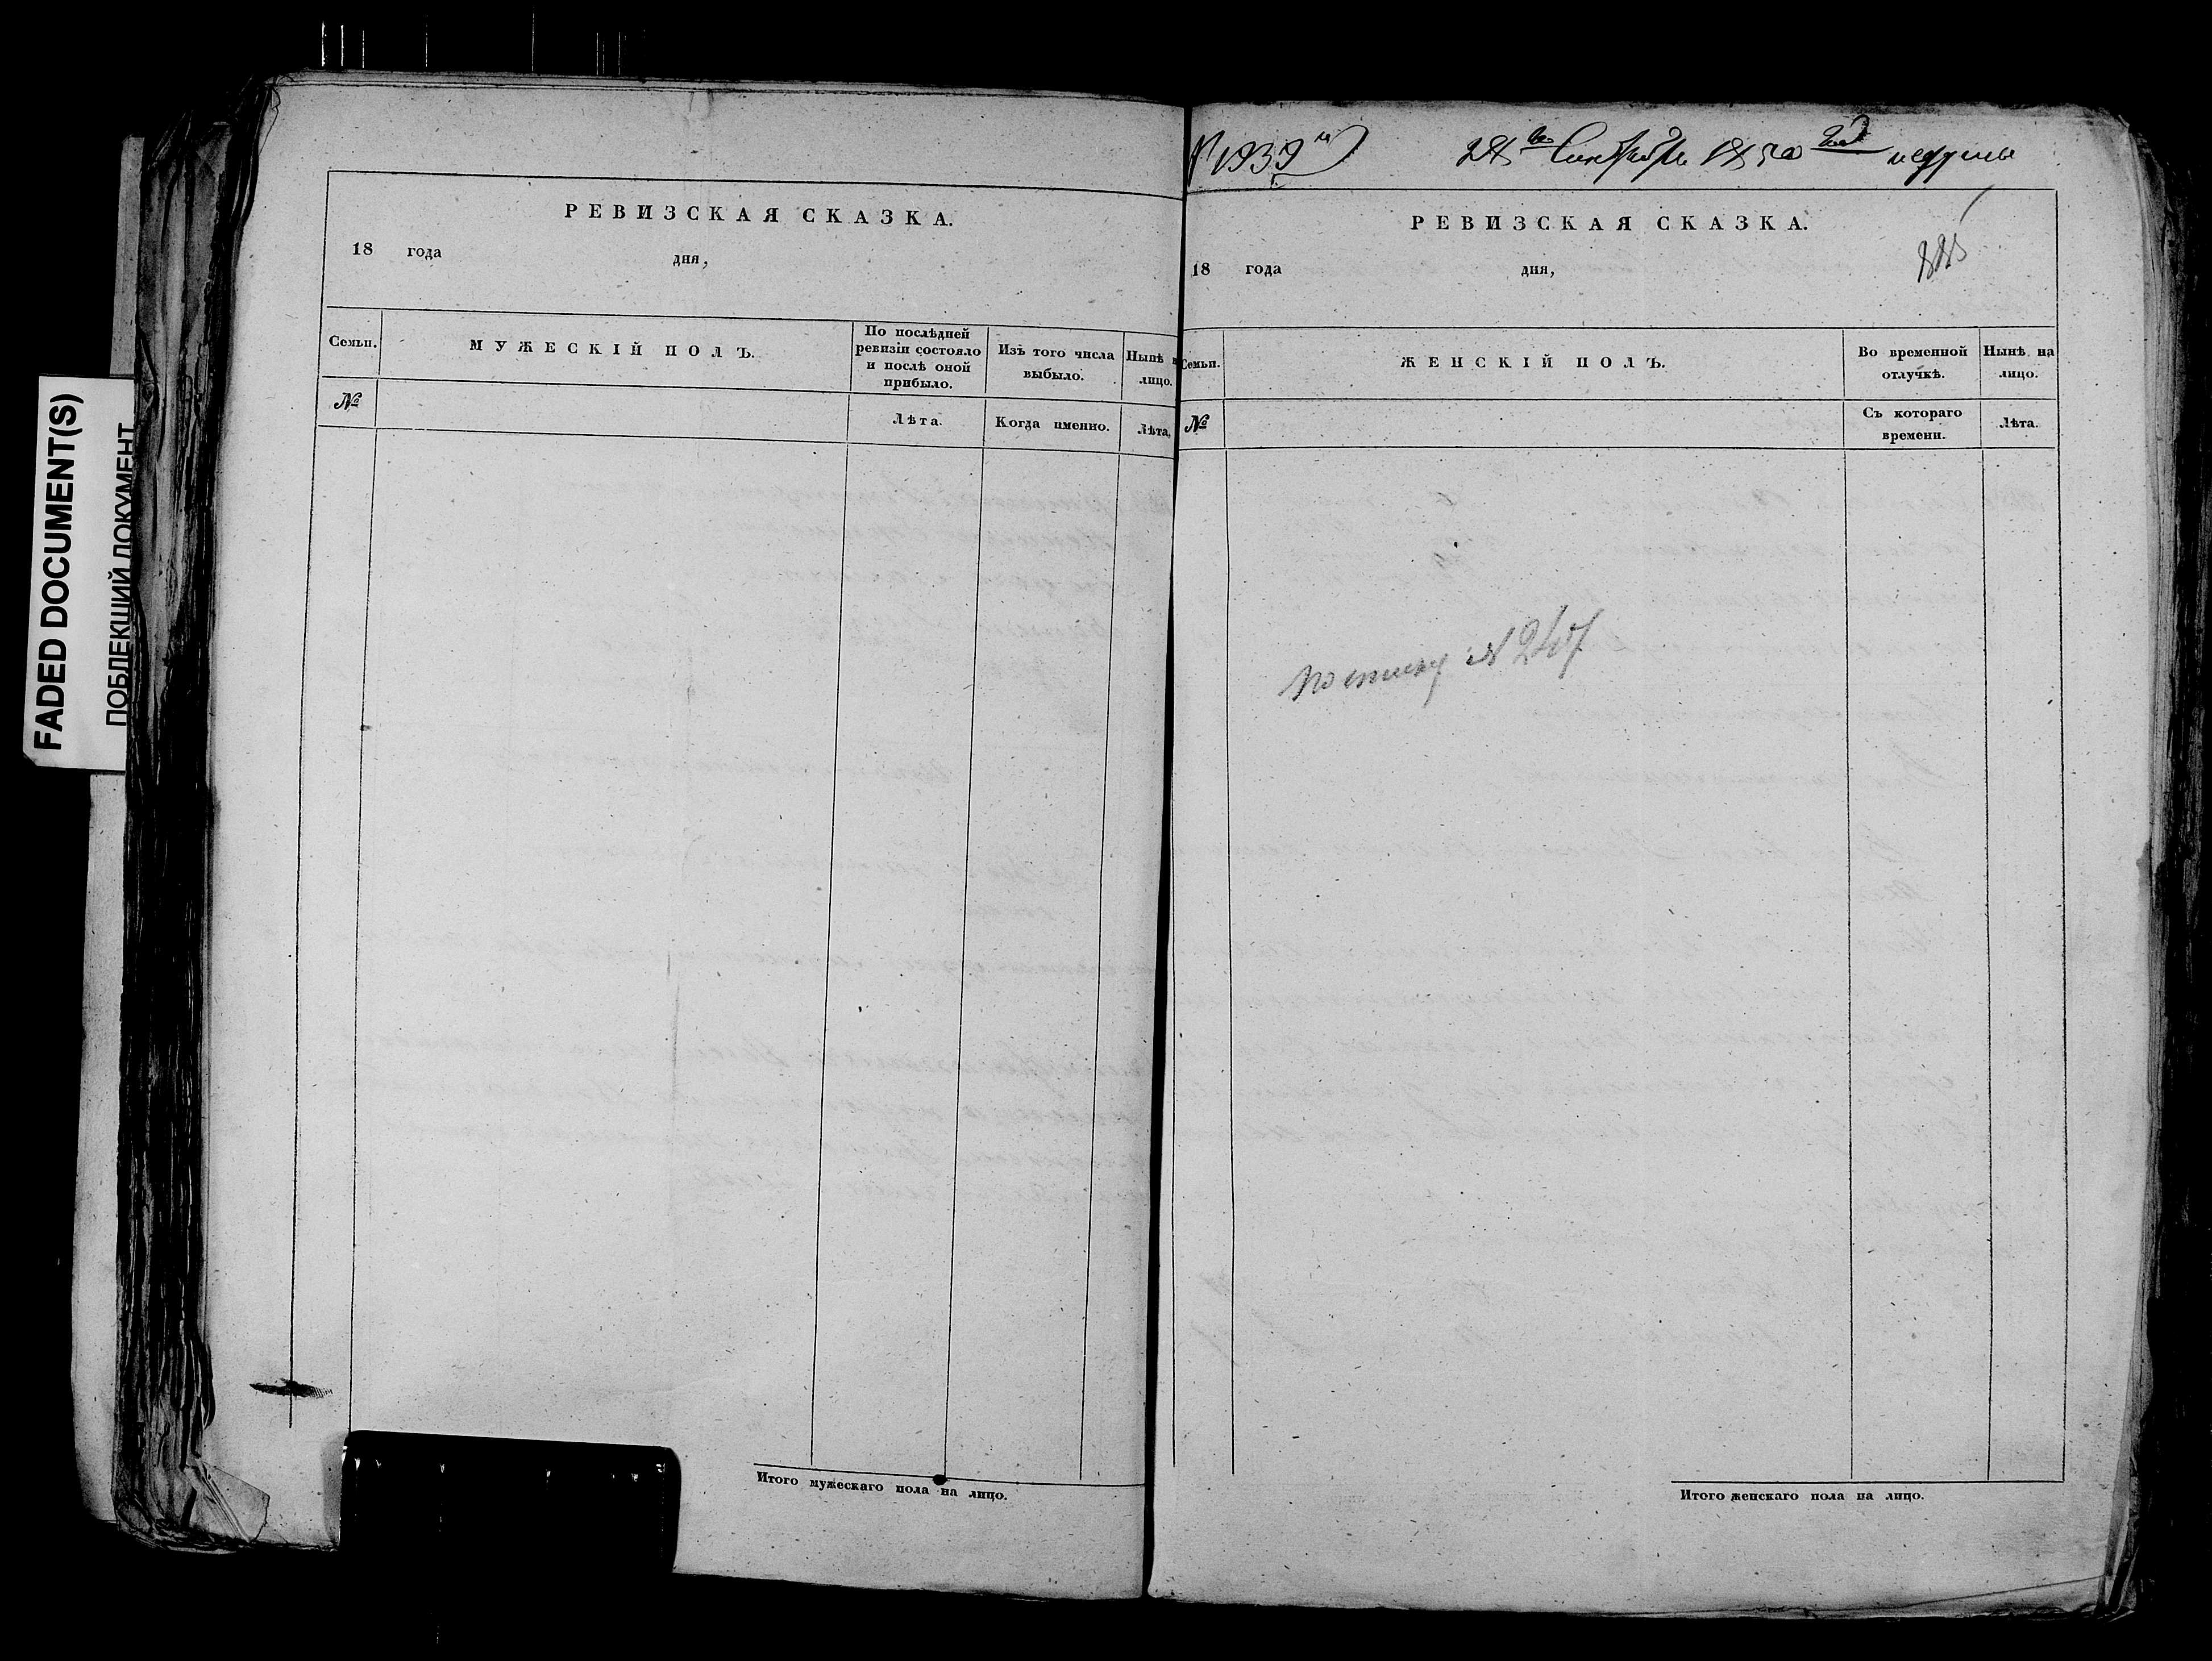 FADED DOCUMENT(S)
ПОБЛЕКЩИЙ ДОКУМЕНТ
РЕВИЗСКАЯ СКАЗКА.
18 года дня,
Семьи. МУЖЕСКІЙ ПОЛЪ. По послѣдней ревизіи состояло и послѣ оной прибыло. Изъ того числа выбыло. Нынѣ н лицо.
№ Лѣта. Когда именно. Лѣта.
Итого мужескаго пола на лицо.
№ 1939 28 Сентября 1850
РЕВИЗСКАЯ СКАЗКА.
18 года дня,
Семьи. ЖЕНСКІЙ ПОЛЪ. Во временной отлучкѣ. Нынѣ на лицо.
№ Съ котораго времени. Лѣта.
по списку №
Итого женскаго пола на лицо.